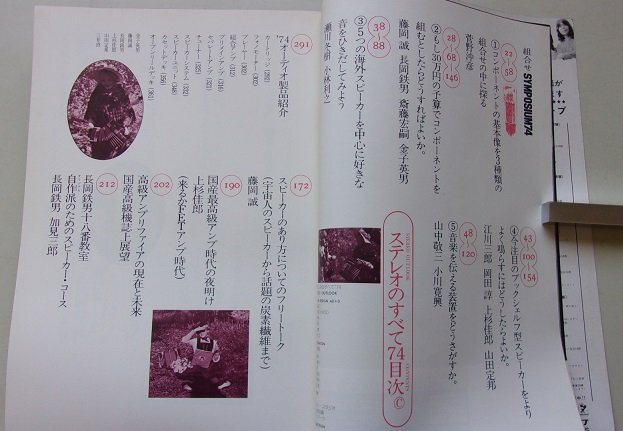 組合せSYMPOSIUM'74
22〜58
①コンポーネントの基本像を3種類の
組合せの中に探る
菅野沖彦
28〜68〜146
②もし30万円の予算でコンポーネントを
組むとしたらどうすればよいか。
藤岡 誠 長岡鉄男 斎藤宏嗣 金子英男
38〜88
③5つの海外スピーカーを中心に好きな
音をひきだしてみよう
瀬川冬樹 小林利之
43〜100〜154
④今注目のブックシェルフ型スピーカーをより
よく鳴らすにはどうしたらよいか。
江川三郎 岡田 諄 上杉佳郎 山田定邦
48〜120
⑤音楽を伝える装置をどうさがすか。
山中敬三 小川寛興
STEREO OUTLOOK
ステレオのすべて74目次©
CONTENTS
172
スピーカーのあり方についてのフリートーク
(宇宙人のスピーカーから話題の炭素繊維まで)
藤岡 誠
190
国産最高級アンプ時代の夜明け
上杉佳郎
(来るかFETアンプ時代)
202
高級アンプリファイアの現在と未来
国産高級機誌上展望
212
長岡鉄男十八番教室
自作派のためのスピーカー・コース
長岡鉄男 加見三郎
291
'74オーディオ製品紹介
カートリッジ(292)
フォノモーター(302)
プレーヤー(302)
総合アンプ(312)
プリメインアンプ(316)
チューナー(332)
スピーカーシステム(332)
スピーカーユニット(346)
カセットデッキ(356)
オープンリールデッキ(361)
金子英男
藤岡誠
長岡鉄男
上杉佳郎
山田定邦